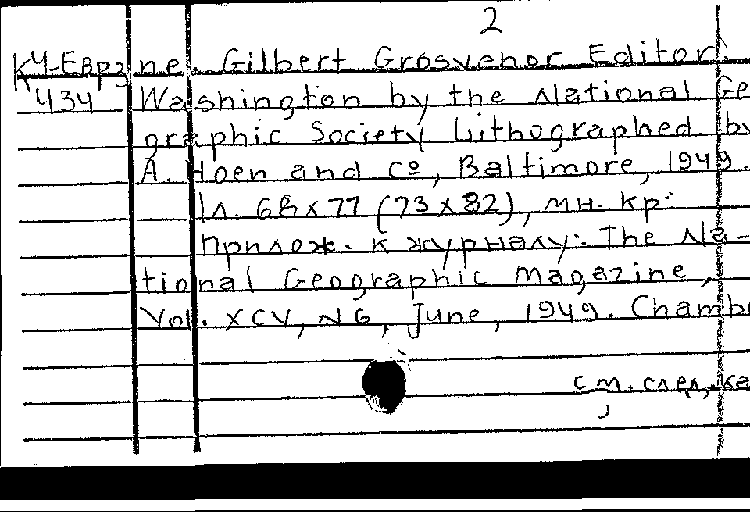 2
К4-Евр3 ne. Gilbert Grosvenor Editor.
434 Washington by the National Ge
graphic Society Lithographed by
A. Hoen and Co, Baltimore, 1949.
1л. 68x77 (73x82), мн. кр.
Прилож. к журналу: The Na-
tional Geographic magazine,
Vol. XCV, N6, June, 1949. Chamb
см. след. ка